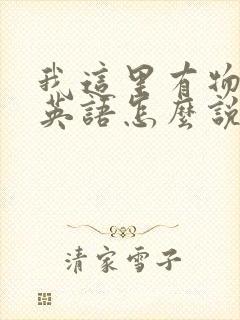 我這里有物
英語怎麼說
清家雪子